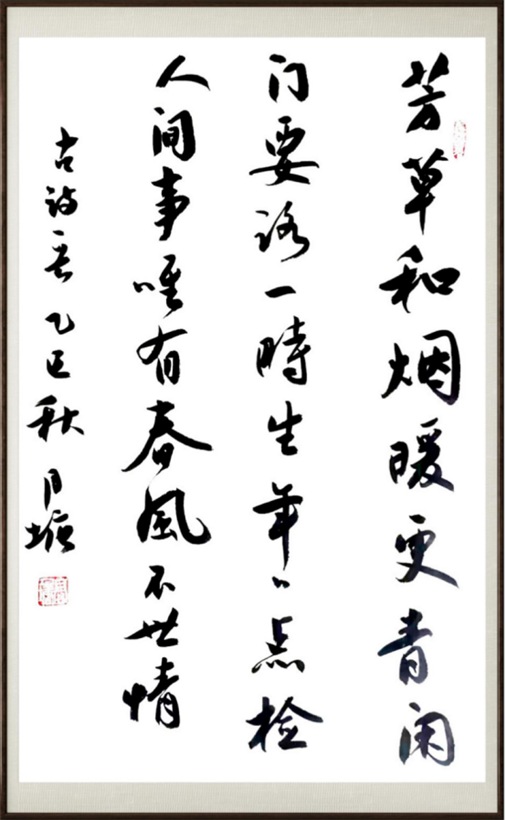 芳草和烟暖更青闲
门要路一時生年々点检
人间事唯有春風不世情
古诗一首乙巳秋月